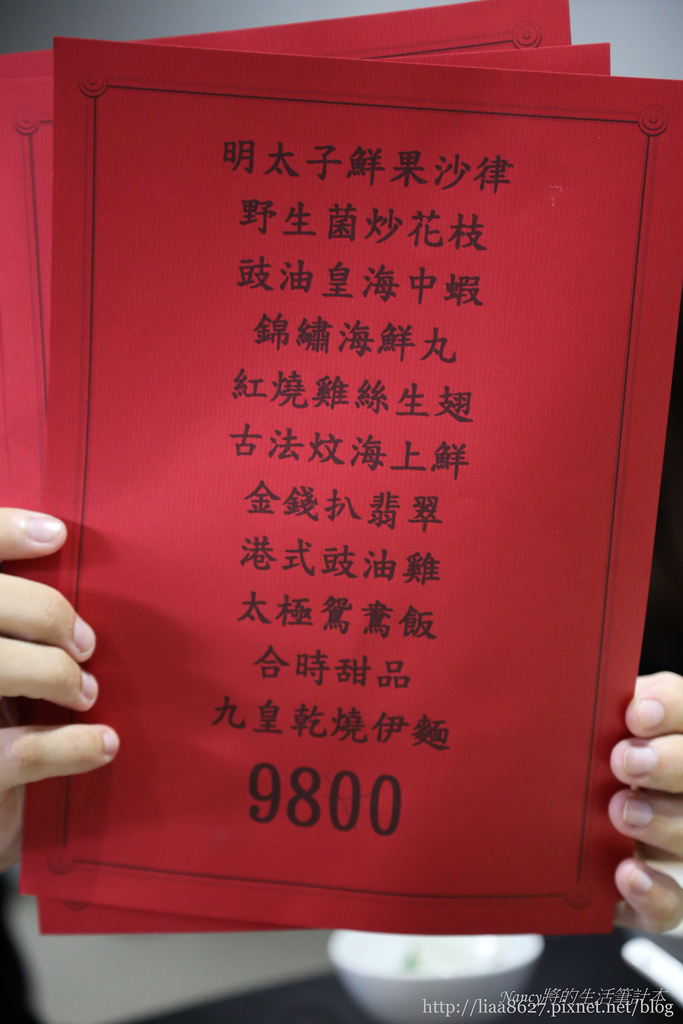 明太子鮮果沙律
野生菌炒花枝
豉油皇海中蝦
錦繡海鮮丸
紅燒雞絲生翅
古法炆海上鮮
金錢扒翡翠
港式豉油雞
太極鴛鴦飯
合時甜品
九皇乾燒伊麵
9800
Nancy將的生活筆計本
http://liaa8627.pixnet.net/blog